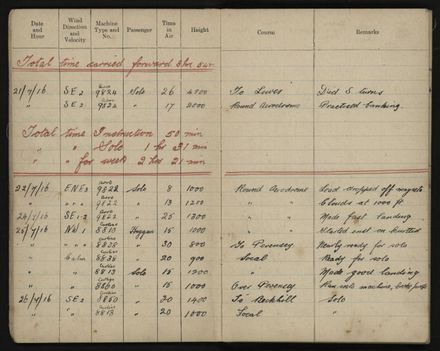 Date and Hour Wind Direction and Velocity Machine Type and No. Passenger Time in Air Height Course Remarks
Total time carried forward 3 hrs 54
21/7/16 SE 2 Avro 9824 Solo 26 To Lewes Did S turns
" SE 2 Avro 9822 " 17 2000 Round Aerodrome Practised banking.
Total time Instruction 50 min
" " Solo 1 hr 31 min
" " for week 2 hrs 21 min
22/7/16 ENE 3 Avro 9822 Solo 8 1000 Round Aerodrome Lead dropped off magneto
" " " Avro 9822 " 13 1200 " " Clouds at 1000 ft.
24/7/16 SE 1-2 Avro 9822 " 25 1300 " " Made fast landing
25/7/16 NW 1 Curtiss 8813 15 1000 " "
" " Curtiss 8838 " 30 800 To Pevensey Nearly ready for solo
" Calm Curtiss 8838 " 20 900 Local Ready for solo
" " Curtiss 8813 Solo 15 1300 " Made good landing
" " Curtiss 8860 " 15 1000 Over Pevensey Ran into machine,
26/7/16 SE 2 Curtiss 8860 " 30 1400 To Bexhill Solo
" " Curtiss 8813 " 20 1000 Local "